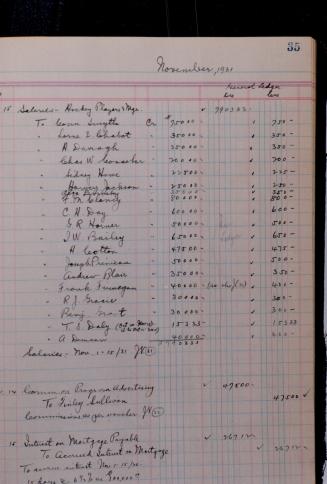 35
November, 1931
General Ledger
Drs Crs
15 Salaries - Hockey Players & Mgr. ✓ 7903.33
To Conn Smythe Cr 750.00 ✓ 750 -
Lorne E Chabot - 350.00 ✓ 350 -
H Darragh - 350.00 ✓ 350 -
Chas W Conacher - 700.00 ✓ 700 -
Sidney Howe - 225.00 ✓ 225 -
Harvey Jackson - 250.00
F. M. Clancy - 800.00 ✓ 800 -
C H Day - 600.00 ✓ 600 -
G. R. Horner - 500.00 ✓ 500 -
I W Bailey - 650.00 ✓ 650 -
H Cotton - 475.00 ✓ 475 -
Joseph Primeau - 500.00 ✓ 500 -
Andrew Blair - 350.00 ✓ 350 -
Frank Finnegan - 400.00
R. J. Gracie - 300.00 ✓ 300 -
Benj. Grant - 300.00 ✓ 300 -
T. S. Daly - 153.33 ✓ 153.33
A Duncan
Salaries - Nov. 1-15/31 JV 21
14 Common Program Advertising ✓ 475.00
To Finlay Sullivan 475.00 ✓
Commissions as per voucher JV 22
15 Interest on Mortgage Payable ✓
To Accrued Interest on Mortgage ✓
To accrue interest Nov. 1-15/31
15 days @ 6½%